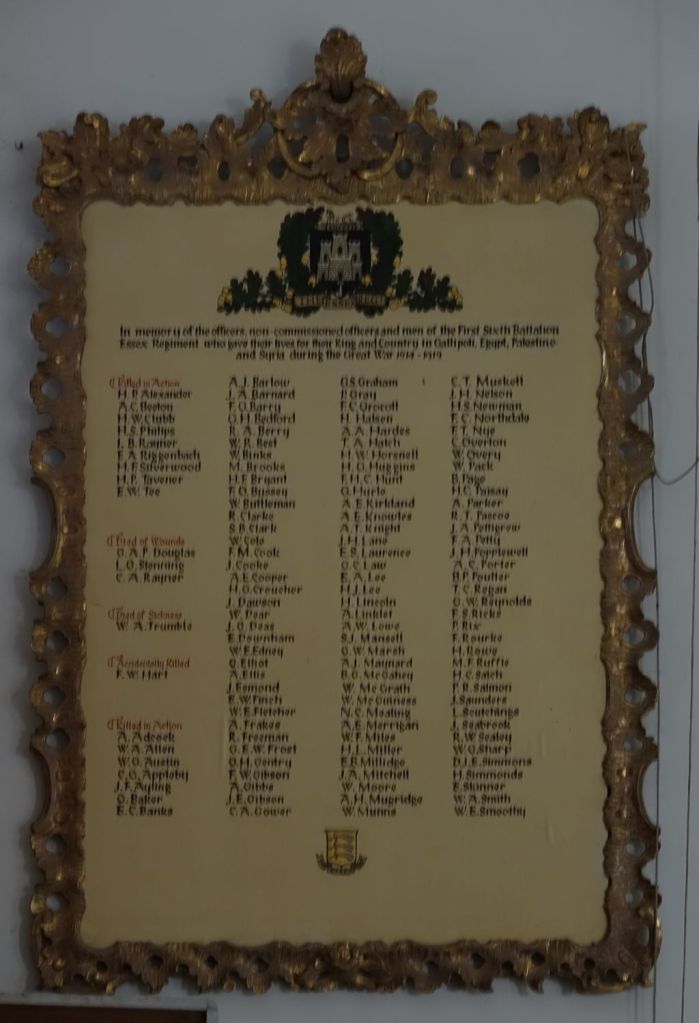 THE ESSEX REGT
In memory of the officers, non-commissioned officers and men of the First Sixth Battalion
Essex Regiment who gave their lives for their King and Country in Gallipoli, Egypt, Palestine
and Syria during the Great War 1914-1919
Killed in Action
H. P. Alexander
A. C. Beeton
H. W. Clubb
H. S. Philips
I. B. Rayner
E. A. Riggenbach
H. F. Silverwood
H. P. Tavener
E. W. Tee
Died of Wounds
O. A. P. Douglas
L. O. Stenning
C. A. Rayner
Died of Sickness
W. A. Trumble
Accidentally Killed
F. W. Hart
Killed in Action
A. Adcock
W. A. Allen
W. G. Austin
C. G. Appleby
J. F. Ayling
O. Baker
E. C. Banks
A. J. Barlow
J. A. Barnard
F. O. Barry
O. H. Bedford
R. A. Berry
W. R. Best
W. Binks
M. Brooks
H. F. Bryant
F. O. Bussey
W. Buttleman
R. Clarke
S. B. Clark
W. Cole
F. M. Cook
J. Cooke
A. E. Cooper
H. G. Croucher
J. Dawson
W. Dear
J. O. Deas
E. Downham
W. E. Edney
G. Elliot
A. Ellis
J. Esmond
E. W. Finch
W. E. Fletcher
A. Frakes
R. Freeman
G. E. W. Frost
G. H. Gentry
F. W. Gibson
A. Gibbs
J. E. Gibson
C. A. Gower
G. S. Graham
P. Gray
F. C. Grocott
H. Halsen
A. A. Hardes
T. A. Hatch
H. W. Horsnell
H. G. Huggins
F. H. C. Hunt
G. Hurle
A. E. Kirkland
A. E. Knowles
A. T. Knight
J. H. Lane
E. S. Laurence
G. C. Law
E. A. Lee
H. J. Lee
H. Lincoln
A. Linklet
A. W. Lowe
S. J. Mansell
G. W. Marsh
A. J. Maynard
B. G. McGahey
W. McGrath
W. McGuiness
N. C. Mealing
A. E. Merrigan
W. F. Miles
H. L. Miller
E. B. Millidge
J. A. Mitchell
W. Moore
A. H. Mugridge
W. Munns
C. T. Muskett
J. H. Nelson
H. S. Newman
F. C. Northdale
F. T. Nye
C. Overton
W. Overy
W. Pack
B. Page
H. C. Paisay
A. Parker
R. T. Pascoe
J. A. Pettigrew
F. A. Petty
J. H. Popplewell
A. C. Porter
B. P. Poulter
T. C. Regan
G. W. Reynolds
F. S. Ricks
P. Rix
F. Rourke
H. Rowe
M. F. Ruffle
H. C. Salch
P. R. Salmon
J. Saunders
L. Scutchings
J. Seabrook
R. W. Sealey
W. G. Sharp
D. J. E. Simmons
H. Simmonds
E. Skinner
W. A. Smith
W. E. Smoothy